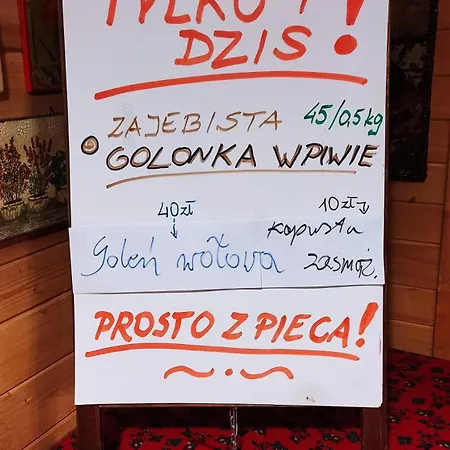 TYLKO !
DZIS !
ZAJEBISTA 45/0,5 kg
GOLONKA W PIWIE
40 zł 10 zł
Goleń wołowa kapusta
zasmaż.
PROSTO Z PIECA!